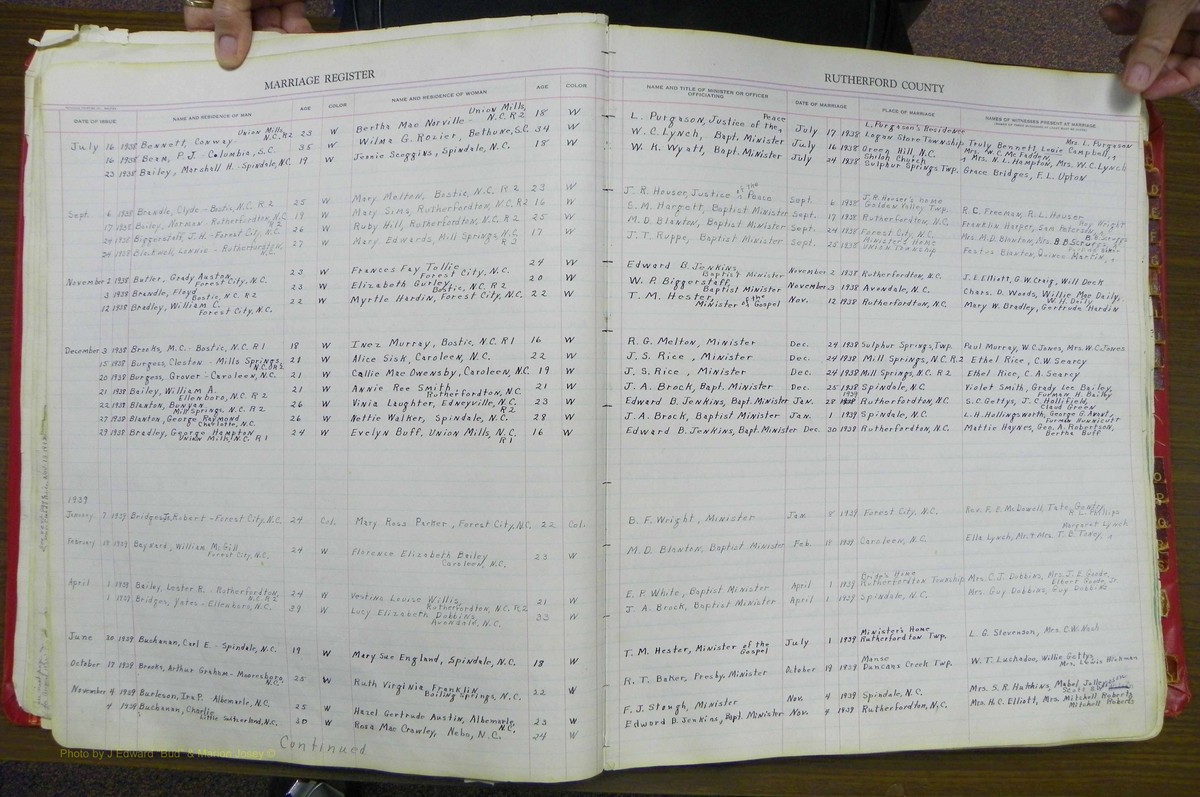 MARRIAGE REGISTER
RUTHERFORD COUNTY
DATE OF ISSUE NAME AND RESIDENCE OF MAN AGE COLOR NAME AND RESIDENCE OF WOMAN AGE COLOR NAME AND TITLE OF MINISTER OR OFFICER OFFICIATING DATE OF MARRIAGE PLACE OF MARRIAGE NAMES OF WITNESSES PRESENT AT MARRIAGE
July 16 1938 Bennett, Conway Union Mills, N.C. R2 23 W Bertha Mae Norville - Union Mills, N.C. R2 18 W L. Purgason, Justice of the Peace July 17 1938 L. Purgason's Residence Logan Store Township Truly Bennett, Louie Campbell, Mrs. L. Purgason
16 1938 Beam, P.J. - Columbia, S.C. 35 W Wilma G. Rozier, Bethune, S.C. 34 W W.C. Lynch, Bapt. Minister July 16 1938 Green Hill, N.C. Mrs. W.C. McFadden, Mrs. N.L. Hampton, Mrs. W.C. Lynch
23 1938 Bailey, Marshall H. - Spindale, N.C. 19 W Jennie Scoggins, Spindale, N.C. 18 W W.K. Wyatt, Bapt. Minister July 24 1938 Shiloh Church Sulphur Springs Twp. Grace Bridges, F.L. Upton
Sept. 6 1938 Brandle, Clyde - Bostic, N.C. R2 25 W Mary Melton, Bostic, N.C. R2 23 W J.R. Houser, Justice of the Peace Sept. 6 1938 J.R. Houser's home Golden Valley Twp. R.C. Freeman, R.L. Houser
17 1938 Bailey, Herman - Rutherfordton, N.C. 19 W Mary Sims, Rutherfordton, N.C. R2 16 W S.M. Hargett, Baptist Minister Sept. 17 1938 Rutherfordton, N.C. Franklin Harper, Sam Peterson, Ray Wright
24 1938 Biggerstaff, J.M. - Forest City, N.C. 26 W Ruby Hill, Rutherfordton, N.C. 25 W M.D. Blanton, Baptist Minister Sept. 24 1938 Forest City, N.C. Mrs. M.D. Blanton, Mrs. B.B.
24 1938 Blackwell, Lonnie - Rutherfordton, N.C. 27 W Mary Edwards, Mill Springs, N.C. R3 17 W J.T. Ruppe, Baptist Minister Sept. 25 1938 Minister's Home Union Township Festus Blanton, Quince Martin,
November 2 1938 Butler, Grady Austin, Forest City, N.C. 23 W Frances Fay Tollie, Forest City, N.C. 24 W Edward B. Jenkins, Baptist Minister November 2 1938 Rutherfordton, N.C. J.L. Elliott, G.W. Craig, Will Deck
3 1938 Brandle, Floyd Bostic, N.C. R2 23 W Elizabeth Gurley, Bostic, N.C. R2 20 W W.P. Biggerstaff, Baptist Minister November 3 1938 Avondale, N.C. Chars. D. Woods, Willie Mae Daily, W.H. Daily
12 1938 Bradley, William C. Forest City, N.C. 22 W Myrtle Hardin, Forest City, N.C. 22 W T.M. Hester, Minister of the Gospel Nov. 12 1938 Rutherfordton, N.C. Mary W. Bradley, Gertrude Hardin
December 3 1938 Brooks, M.C. - Bostic, N.C. R1 18 W Inez Murray, Bostic, N.C. R1 16 W R.G. Melton, Minister Dec. 24 1938 Sulphur Springs, Twp. Paul Murray, W.C. Jones, Mrs. W.C. Jones
15 1938 Burgess, Cleston - Mills Springs, N.C. R2 21 W Alice Sisk, Caroleen, N.C. 22 W J.S. Rice, Minister Dec. 24 1938 Mill Springs, N.C. R2 Ethel Rice, C.W. Searcy
20 1938 Burgess, Grover - Caroleen, N.C. 21 W Callie Mae Owensby, Caroleen, N.C. 19 W J.S. Rice, Minister Dec. 24 1938 Mill Springs, N.C. R2 Ethel Rice, C.A. Searcy
21 1938 Bailey, William A. Ellenboro, N.C. R2 21 W Annie Roe Smith, Rutherfordton, N.C. 21 W J.A. Brock, Bapt. Minister Dec. 25 1938 Spindale, N.C. Violet Smith, Grady Lee Bailey, Furman H. Bailey
22 1938 Blanton, Bunyan Mill Springs, N.C. R2 26 W Vinia Laughter, Edneyville, N.C. R2 23 W Edward B. Jenkins, Bapt. Minister Jan. 28 1939 Rutherfordton, N.C. S.C. Gettys, J.C. Hollifield, Claud Green
27 1938 Blanton, George Raymond Charlotte, N.C. 26 W Nettie Walker, Spindale, N.C. 28 W J.A. Brock, Baptist Minister Jan. 1 1939 Spindale, N.C. L.H. Hollingsworth, George G. Arent, Furman Hunnicutt
29 1938 Bradley, George Hampton Union Mills, N.C. R1 24 W Evelyn Buff, Union Mills, N.C. R1 16 W Edward B. Jenkins, Bapt. Minister Dec. 30 1938 Rutherfordton, N.C. Mattie Haynes, Geo. A. Robertson, Bertha Buff
1939
January 7 1939 Bridges, Jr. Robert - Forest City, N.C. 24 Col. Mary Ross Parker, Forest City, N.C. 22 Col. B.F. Wright, Minister Jan. 8 1939 Forest City, N.C. Rev. F.E. McDowell, Tate Gentry, R.L. Phillips
February 18 1939 Baynard, William McGill Forest City, N.C. 24 W Florence Elizabeth Bailey Caroleen, N.C. 23 W M.D. Blanton, Baptist Minister Feb. 1939 Caroleen, N.C. Ella Lynch, Mr. & Mrs. T.D. Toney, Margaret Lynch
April 1 1939 Bailey, Lester R. - Rutherfordton, N.C. R2 24 W Vestine Louise Willis, Rutherfordton, N.C. R2 21 W E.P. White, Baptist Minister April 1 1939 Bride's Home Rutherfordton Township Mrs. C.J. Dobbins, Mrs. J.E. Goode,
1 1939 Bridges, Yates - Ellenboro, N.C. 39 W Lucy Elizabeth Dobbins Avondale, N.C. 33 W J.A. Brock, Baptist Minister April 1939 Spindale, N.C. Mrs. Guy Dobbins, Guy Dobbins
June 30 1939 Buchanan, Carl E. - Spindale, N.C. 19 W Mary Sue England, Spindale, N.C. 18 W T.M. Hester, Minister of the Gospel July 1 1939 Minister's Home Rutherfordton Twp. L.G. Stevenson, Mrs. C.W. Nash
October 17 1939 Brooks, Arthur Graham - Mooresboro, N.C. 25 W Ruth Virginia Franklin Boiling Springs, N.C. 22 W R.T. Baker, Presby. Minister October 19 1939 Manse Duncans Creek Twp. W.T. Luckadoo, Willie Gettys, Mrs. Lewis Hickman
November 4 1939 Burleson, Ira P. Albemarle, N.C. 25 W Hazel Gertrude Austin, Albemarle, N.C. 23 W F.J. Stough, Minister Nov. 4 1939 Spindale, N.C. Mrs. S.R. Hutchins, Mabel
4 1939 Buchanan, Charlie Little Switzerland, N.C. 30 W Rosa Mae Crawley, Nebo, N.C. 24 W Edward B. Jenkins, Bapt. Minister Nov. 4 1939 Rutherfordton, N.C. Mrs. H.C. Elliott, Mrs. Mitchell Roberts Mitchell Roberts
Continued
Photo by J Edward "Bud" & Marion Josey ©